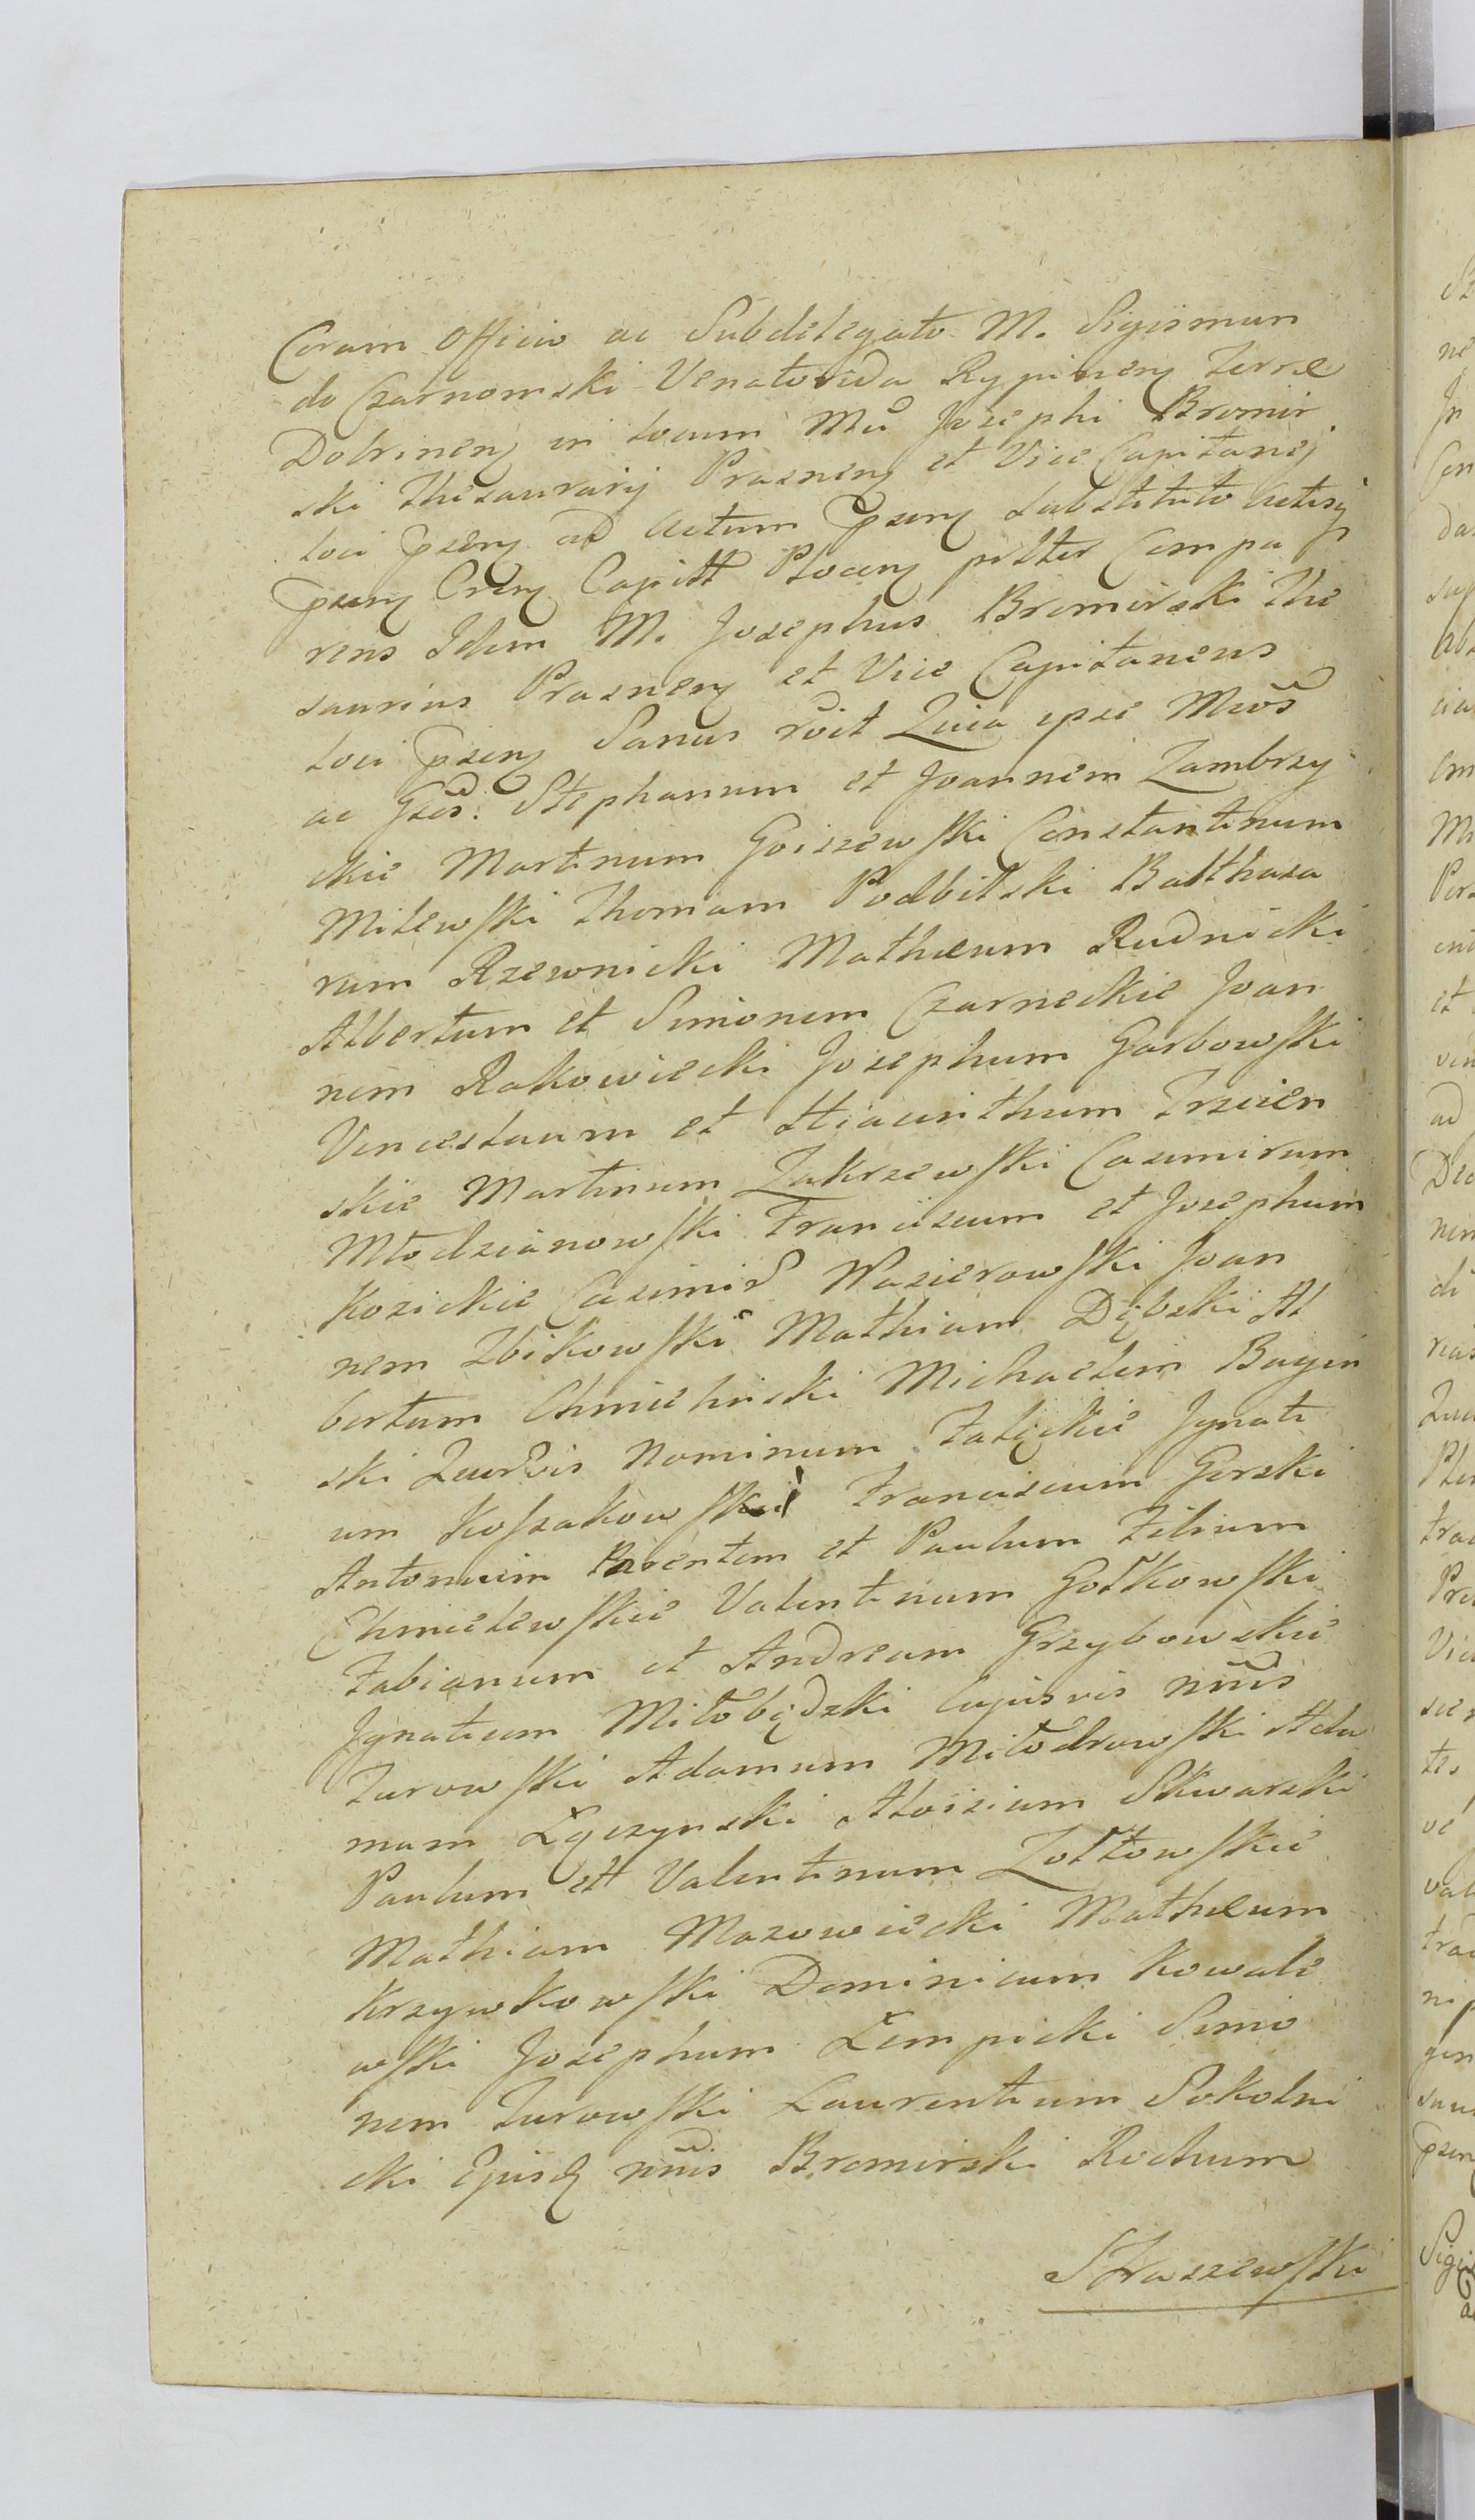 Coram Officio ac Subdelegato M. Sigismun
do Czarnomski Venatorida Rypinen Terræ
Dobrinen in locum Mci Josephi Bromir
ski Thesaurarij Prasnen et Vice Capitanej
loci psen ad Actum psen substituto Actisq
psen Cren Capitt Plocen psltter Compa
rens Idem M. Josephus Bromirski The
saurius Prasnen et Vice Capitaneus
loci psen Sanus roit Quia ipse Mcos
ac Gsos: Stephanum et Joannem Zambrzy
ckie Martinum Goiszewski Constantinum
Milewski Thomam Podbilski Balthasa
rum Rzewnicki Mathæum Rudnicki
Albertum et Simonem Czarneckie Joan
nem Rakowiecki Josephum Garbowski
Venceslaum et Hiacinthum Trzcien
skie Martinum Zakrzewski Casimirum
Młodzianowski Franciscum et Josephum
Kozickie Casimir Wasierowski Joan
nem Zbikowski Mathiam Dębski Al
bertum Chmielinski Michaelem Bagin
ski Quorvis Nominum Falęckie Ignati
um Kossakowski Franciscum Gorski
Antonium Parentem et Paulum Filium
Chmielewskie Valentinum Gołkowski
Fabianum et Andream Grzybowskie
Ignatium Miłobędzki Cujusvis nnis
Turowski Adamum Miłodrowski Ada
mum Łączynski Aloisium Skwarski
Paulum et Valentinum Zołtowskie
Mathiam Mazowiecki Mathæum
Krzywkowski Dominicum Kowale
wski Josephum Łempicki Simo
nem Turowski Laurentium Sokolni
cki Ejusq nnis Bromirski Rochum
Straszewski